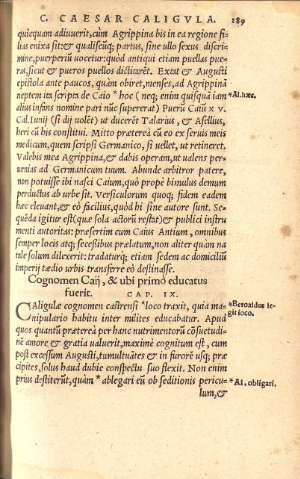 C. CAESAR CALIGVLA. 189
quicquam adiuuerit, cùm Agrippina bis in ea regione fi-
lias enixa sit: & qualiscūq; partus, sine ullo sexus discri-
mine, puerperiū uocetur: quòd antiqui etiam puellas pue-
ras, sicut & pueros puellos dictitarēt. Extat & Augusti
epistola ante paucos, quàm obiret, menses, ad Agrippinā
neptem ita scripta de Caio *hoc (neq; enim quisquā iam *Al. hæc.
alius infans nomine pari tūc supererat) Puerū Caiū x v.
Cal. Iunij (si dij uolēt) ut ducerēt Talarius, & Asellius,
heri cū his constitui. Mitto præterea cū eo ex seruis meis
medicum, quem scripsi Germanico, si uellet, ut retineret.
Valebis mea Agrippina, & dabis operam, ut ualens per-
uenias ad Germanicum tuum. Abunde arbitror patere,
non potuisse ibi nasci Caium, quò propè bimulus demum
perductus ab urbe sit. Versiculorum quoq; fidem eadem
hæc eleuant, & eò facilius, quòd hi sine autore sunt. Se-
quēda igitur est (quæ sola actorū restat) & publici instru-
menti autoritas: præsertim cum Caius Antium, omnibus
semper locis atq; secessibus prælatum, non aliter quàm na-
tale solum dilexerit: tradaturq; etiam sedem ac domiciliū
imperij tædio urbis transferre eò destinasse.
Cognomen Caij, & ubi primo educatus
fuerit. CAP. IX.
CAligulæ cognomen castrensi *loco traxit, quia ma- *Beroaldus le-
nipulario habitu inter milites educabatur. Apud git ioco.
quos quantū præterea per hanc nutrimentorū cōsuetudi-
nē amore & gratia ualuerit, maximè cognitum est, cum
post excessum Augusti, tumultuātes & in furorē usq; præ
cipites, solus haud dubiè conspectu suo flexit. Non enim
prius destiterūt, quàm *ablegari eū ob seditionis pericu- *Al. obligari.
lum, &